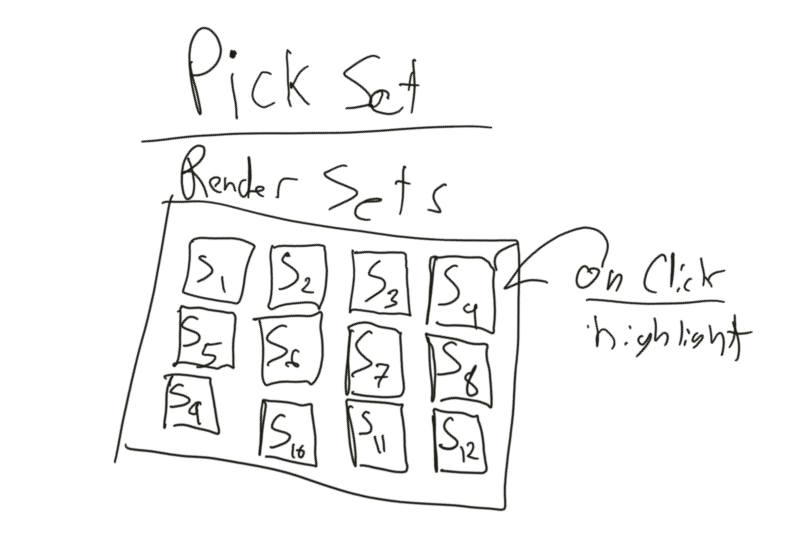 Pick Set
Render Sets
S1 S2 S3 S4
S5 S6 S7 S8
S9 S10 S11 S12
on Click
highlight